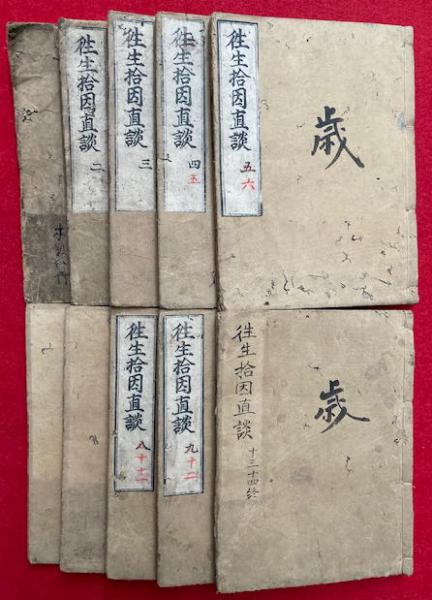 歳
徃生拾因直談 五六
徃生拾因直談 四五
徃生拾因直談 三
徃生拾因直談 二
歳
徃生拾因直談 十三十四終
徃生拾因直談 九十二
徃生拾因直談 八十一